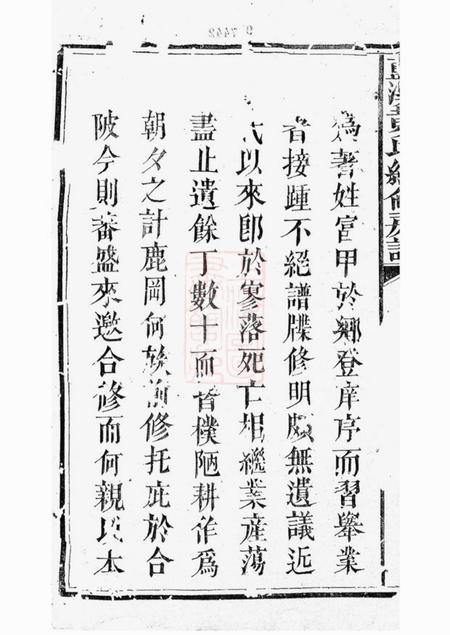 爲著姓富甲於鄉登庠序而習舉業
者接踵不絕譜牒修明頗無遺議近
以來卽於寥落死亡相繼業産蕩
盡止遺餘丁數十而皆樸陋耕作爲
朝夕之計鹿岡何族前修托庇於合
陂今則蕃盛來邀合修而何親以本
黃氏續修房譜